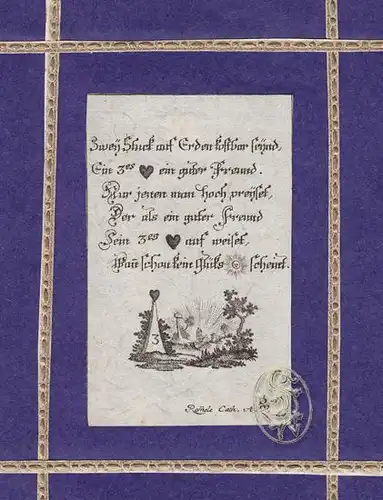 Zweÿ Stuck auf Erden kostbar seÿnd,
Ein 3es ein guter Freund.
Nur jenen man hoch preÿset,
Der als ein guter Freund
Sein 3es auf weiset,
Wañ schon kein Glüks scheint.
3
Cath.